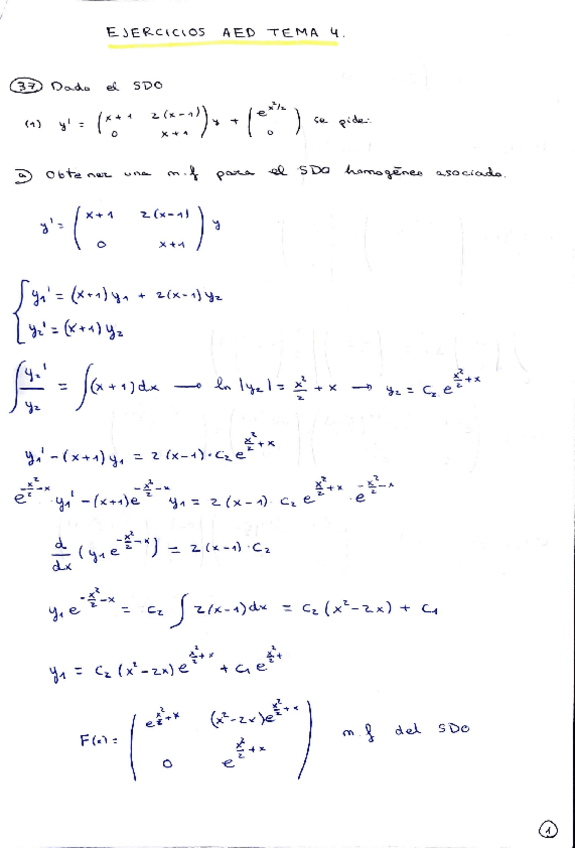 EJERCICIOS AED TEMA 4.
(37) Dado el SDO
(1) y' = ( x+1 2(x-1) ; 0 x+1 ) y + ( e^{x²/2} ; 0 ) se pide:
a) Obtener una m.f para el SDO homogéneo asociado.
y' = ( x+1 2(x-1) ; 0 x+1 ) y
{ y₁' = (x+1)y₁ + 2(x-1)y₂
y₂' = (x+1)y₂
∫ y₂'/y₂ = ∫(x+1)dx → ln|y₂| = x²/2 + x → y₂ = C₂ e^{x²/2+x}
y₁' - (x+1)y₁ = 2(x-1)·C₂e^{x²/2+x}
e^{-x²/2-x} y₁' - (x+1)e^{-x²/2-x} y₁ = 2(x-1) C₂ e^{x²/2+x} · e^{-x²/2-x}
d/dx (y₁e^{-x²/2-x}) = 2(x-1)·C₂
y₁e^{-x²/2-x} = C₂ ∫ 2(x-1)dx = C₂(x²-2x) + C₁
y₁ = C₂(x²-2x)e^{x²/2+x} + C₁e^{x²/2+
F(x) = ( e^{x²/2+x} (x²-2x)e^{x²/2+x} ; 0 e^{x²/2+x} ) m.f del SDO
1